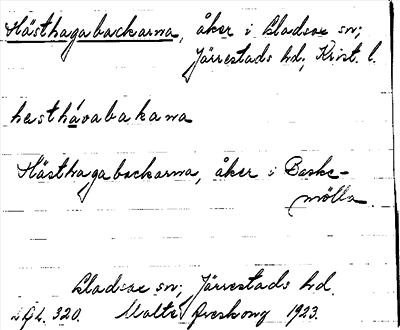 Hästhagabackarna, åker i Gladsax sn;
Järrestads hd; Krist. l.
hesthávabakana
Hästhagabackarna, åker i Baske-
mölla.
Gladsax sn; Järrestads hd.
320. Malte 1923.